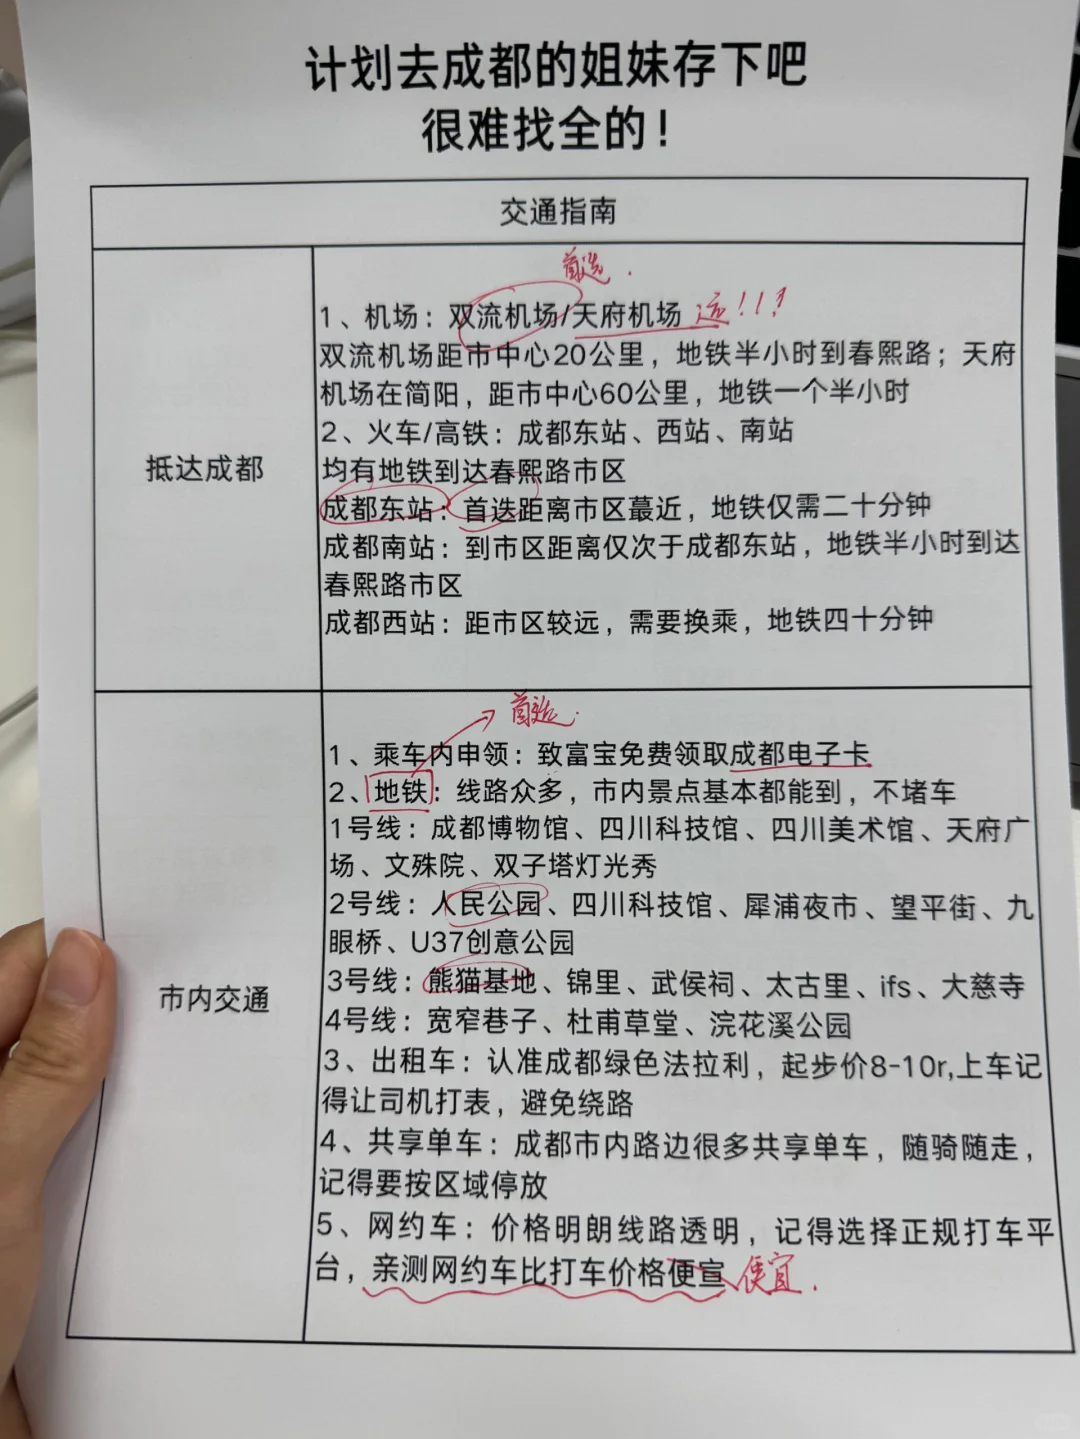 计划去成都的姐妹存下吧
很难找全的！
交通指南
首选.
1、机场：双流机场/天府机场 远!!!
双流机场距市中心20公里，地铁半小时到春熙路；天府
机场在简阳，距市中心60公里，地铁一个半小时
2、火车/高铁：成都东站、西站、南站
均有地铁到达春熙路市区
抵达成都
成都东站：首迭距离市区蕞近，地铁仅需二十分钟
成都南站：到市区距离仅次于成都东站，地铁半小时到达
春熙路市区
成都西站：距市区较远，需要换乘，地铁四十分钟
首选.
1、乘车内申领：致富宝免费领取成都电子卡
2、地铁：线路众多，市内景点基本都能到，不堵车
1号线：成都博物馆、四川科技馆、四川美术馆、天府广
场、文殊院、双子塔灯光秀
2号线：人民公园、四川科技馆、犀浦夜市、望平街、九
眼桥、U37创意公园
3号线：熊猫基地、锦里、武侯祠、太古里、ifs、大慈寺
市内交通
4号线：宽窄巷子、杜甫草堂、浣花溪公园
3、出租车：认准成都绿色法拉利，起步价8-10r,上车记
得让司机打表，避免绕路
4、共享单车：成都市内路边很多共享单车，随骑随走，
记得要按区域停放
5、网约车：价格明朗线路透明，记得选择正规打车平
台，亲测网约车比打车价格便宣 便宜.